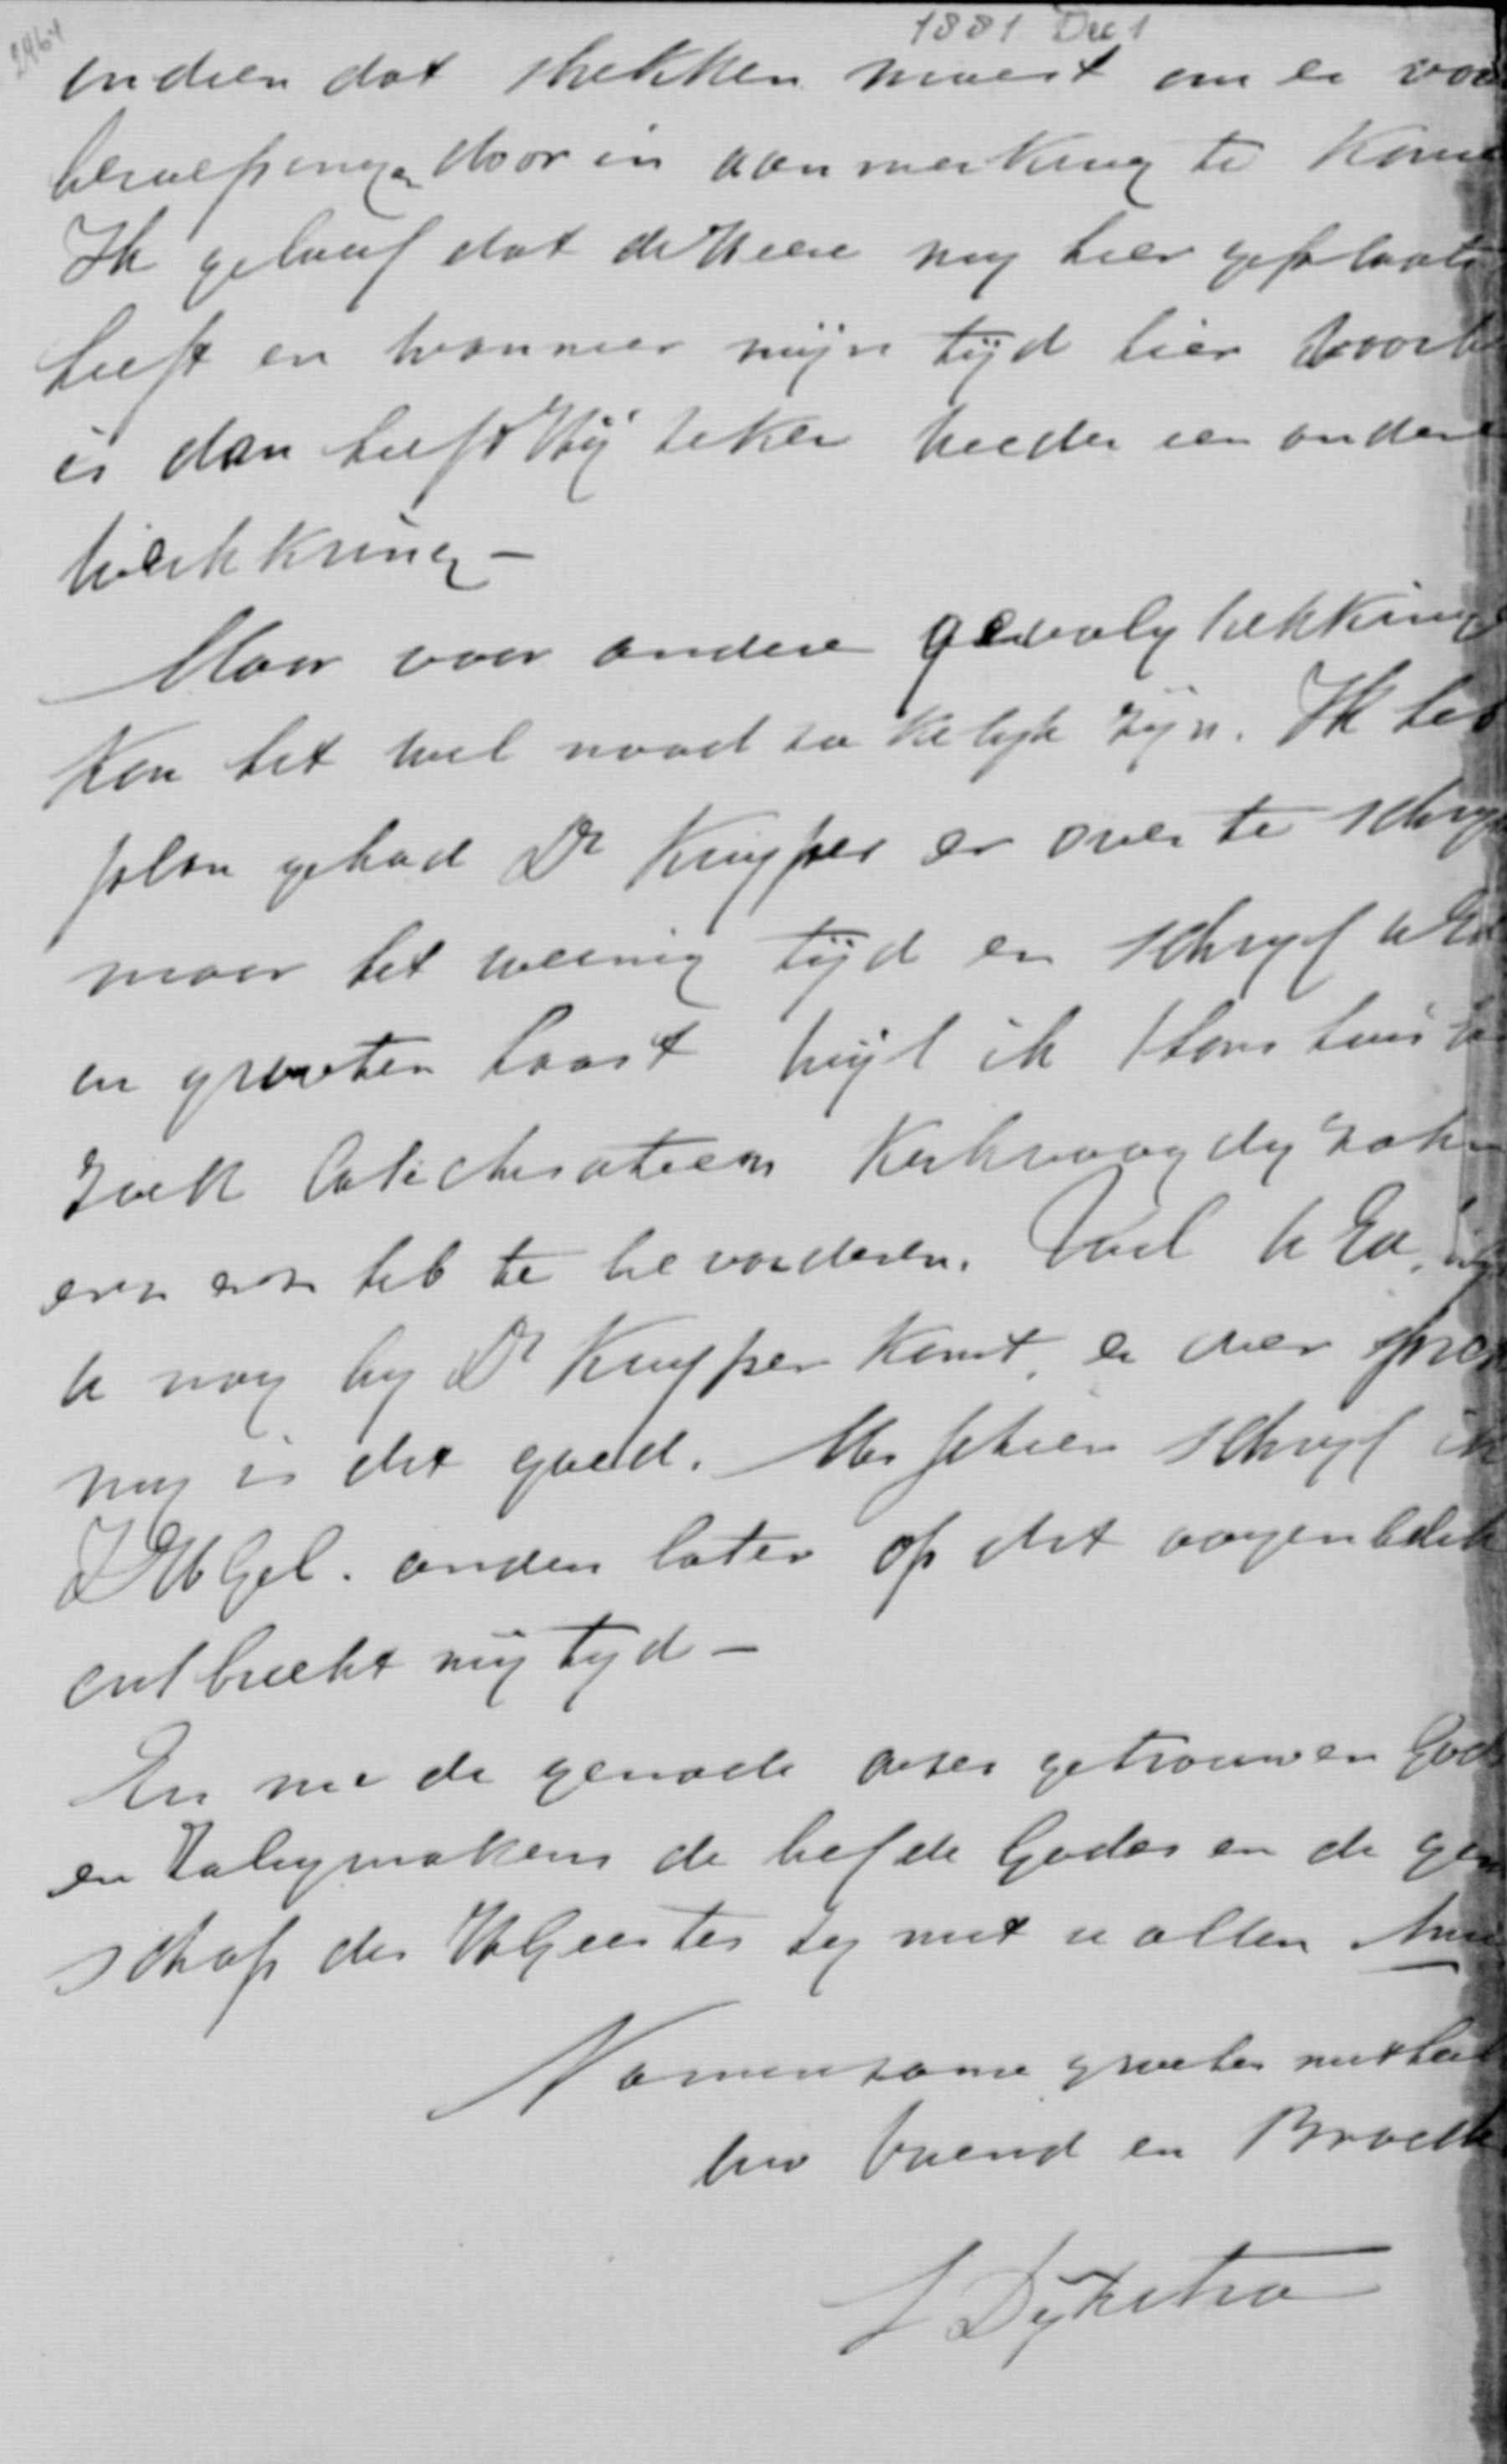 2464
1881 Dec 1
indien dat strekken moest om er voor
beroepingen door in aanmerking te kome
Ik geloof dat de Heere my hier geplaats
heeft en wanneer mijn tijd hier voorb
is dan heeft Hij zeker weeder een andere
werkkring –
Maar voor andere gevolgtrekkinge
kon het wel noodzakelyk zijn. Ik heb
plan gehad Dr Kuyper er over te schryv
maar het weinig tijd en schryf u Ed
in grooten haast wijl ik thans huis
zoek Catechisatieen Kerkvoogdy zaken
enz enz heb te bevorderen. Wil U Ed.
u nog by Dr Kuyper komt er over spre
my is dit goed. Misschien schryf ik
ZWGel. anders later op dit oogenblik
ontbreekt mij tyd –
En nu de genade onzes getrouwen God
en Zaligmakers de liefde Godes en de gem
schap des HGeestes zy met u allen Am
Namens ons groeten met heil
Uw Vriend en Broede
L Dykstra